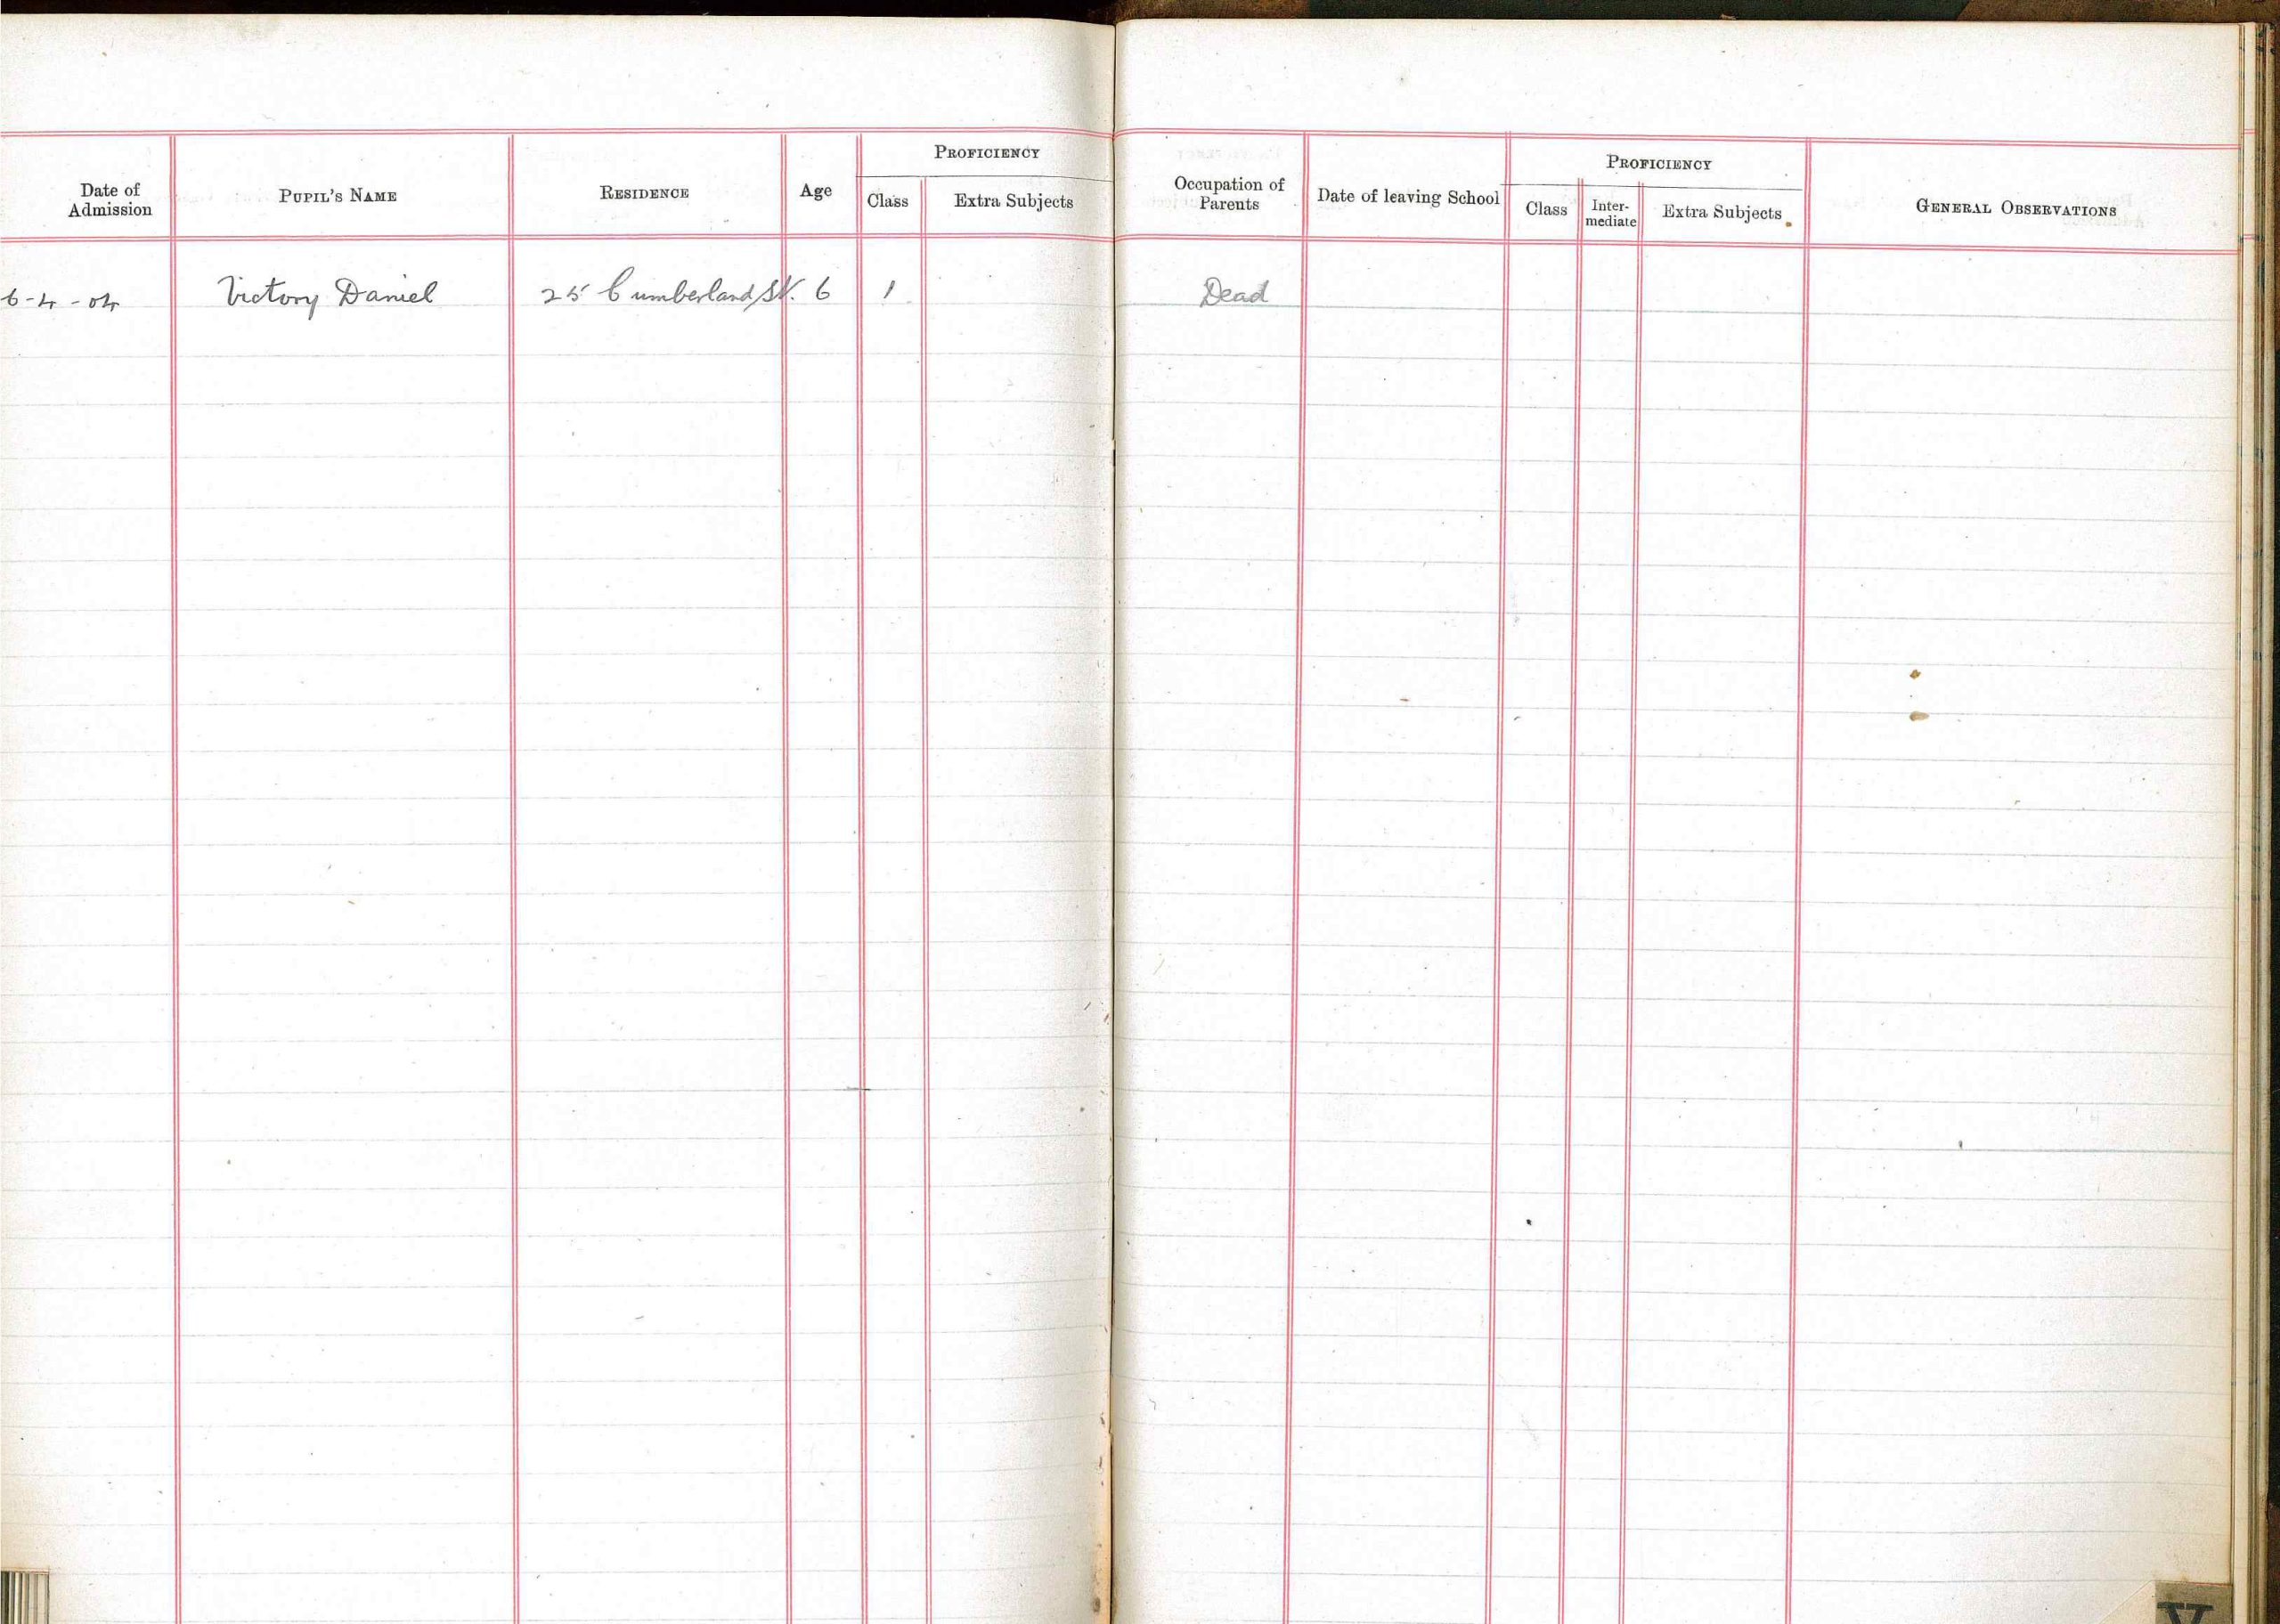 Date of Admission
PUPIL'S NAME
RESIDENCE
Age
PROFICIENCY
Class
Extra Subjects
Occupation of Parents
Date of leaving School
PROFICIENCY
Class
Inter-mediate
Extra Subjects
GENERAL OBSERVATIONS
6-4-04 Victory Daniel 25 Cumberland St. 6 1 Dead